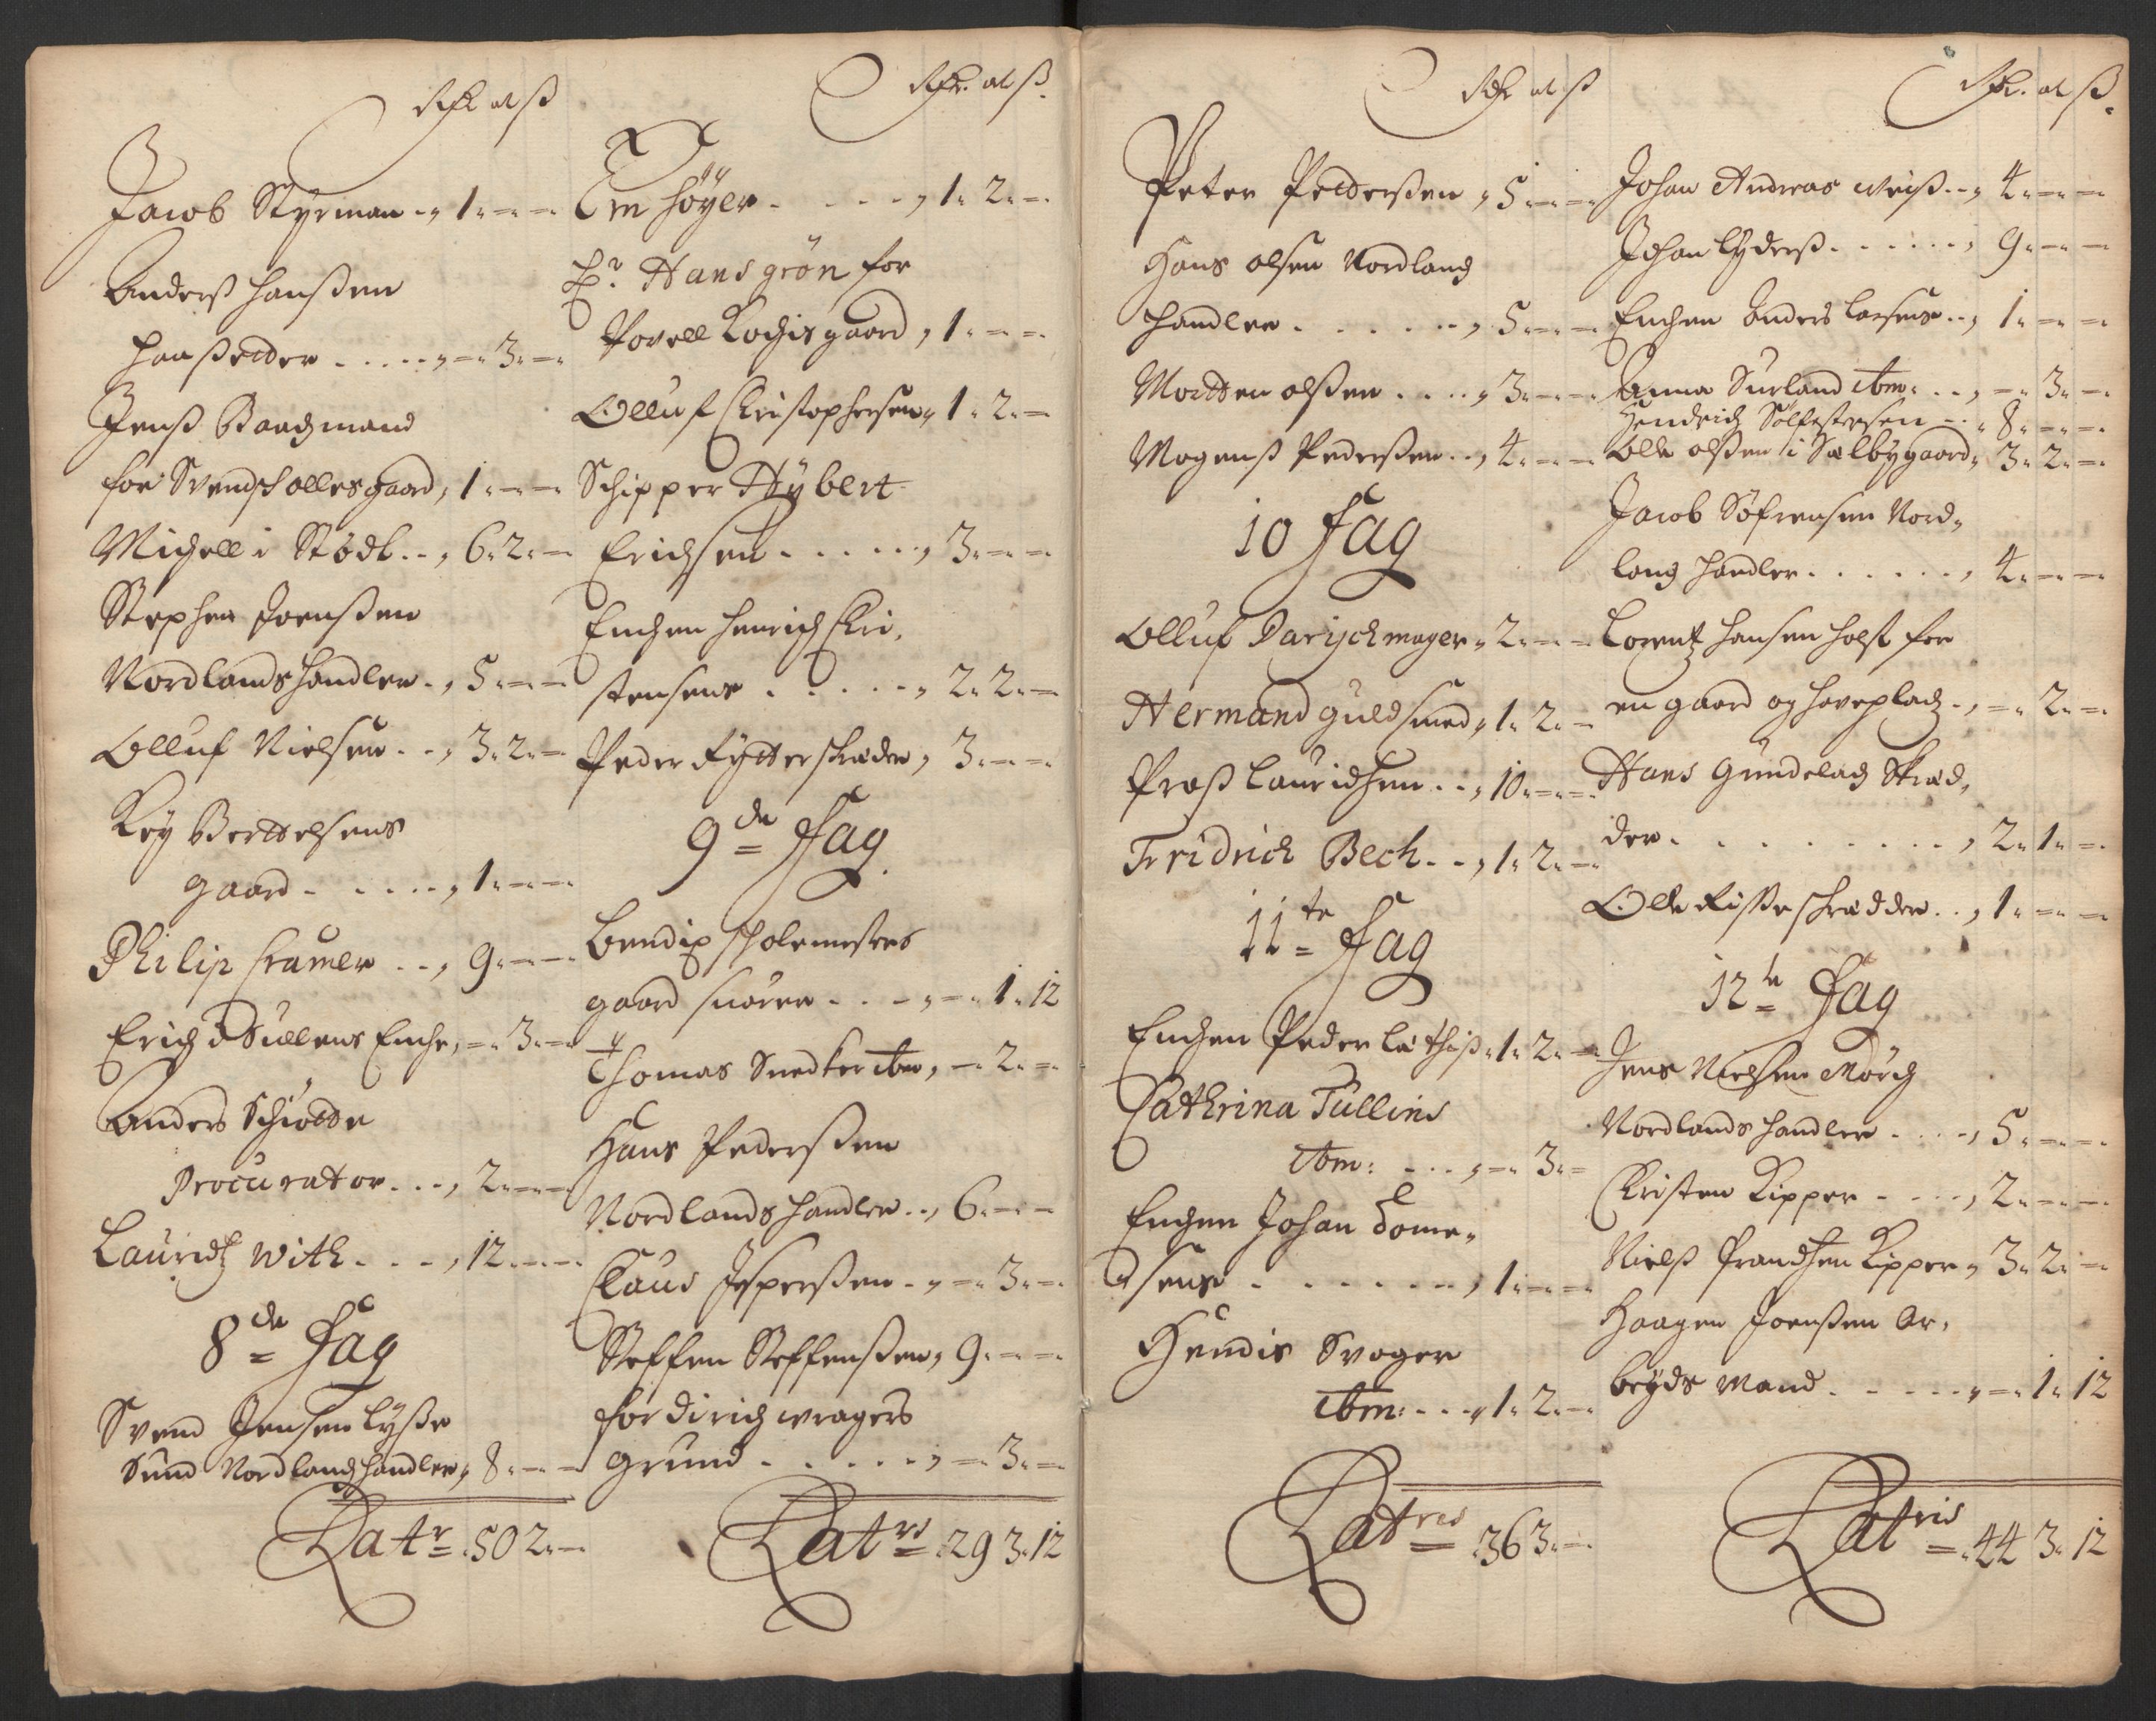 Rdr m ß
Jacob Styrman . . , 1 „ – „ –
Anderß Hanßen
Haaßetter . . . . . , – „ 3 „ –
Jenß Baadzmand
for Svendß ollesgaard , 1 „ – „ –
Michell i Stödl . . , 6 „ 2 „ –
Stephen Joenßen
Nordlandshandler . , 5 „ – „ –
Olluf Nielsen . . , 3 „ 2 „ –
Key Berttelsens
gaard . . . . . , 1 „ – „ –
Philip Cramer . . , 9 „ – „ –
Erich Sullens Enche , – „ 3 „ –
Anders Schiøtte
Procurator . . . , 2 „ – „ –
Lauridtz With . . . , 12 „ – „ –
8de Fag
Svend Jensen Lysse
Sund Nordlandshandler , 8 „ – „ –
Latr 50 2 „ –
Rdr. m ß.
Em Höyer . . . . . , 1 „ 2 „ –
Hr. Hans grön for
Povell Kochis gaard , 1 „ – „ –
Olluf Christophersen , 1 „ 2 „ –
Schipper Hybert
Erichsen . . . . . , 3 „ – „ –
Enchen Henrich Chri„
stensens . . . . . , 2 „ 2 „ –
Peder Rytter schreder , 3 „ – „ –
9de Fag
Bendix Scholemesters
gaard snören . . . , – „ 1 „ 12
Thomas Snedker ibm , – „ 2 „ –
Hans Pederßen
Nordlands handler . . , 6 „ – „ –
Claus Jesperßen . . , – „ 3 „ –
Steffen Steffenßen , 9 „ – „ –
for Dirich wragers
grund . . . . . , – „ 3 „ –
Latrs 29 3 „ 12
Rdr m ß
Peter Petterßen , 5 „ – „ –
Hans olsen Nordlands
handler . . . . . . , 5 „ – „ –
Mortten olßen . . . . , 3 „ – „ –
Mogenß Pederßen . . , 4 „ – „ –
10 Fag
Olluf Parychmager , 2 „ – „ –
Hermand guldsmed , 1 „ 2 „ –
Praß Lauridsen . . , 10 „ – „ –
Fridrich Bech . . , 1 „ 2 „ –
11te Fag
Enchen Peder Læthis , 1 „ 2 „ –
Cathrina Tullins
ibm: . . . , – „ 3 „ –
Enchen Johan Tome„
sens . . . . . . . , 1 „ – „ –
Hendis Svoger
ibm: . . . , 1 „ 2 „ –
Latres 36 3 „ –
Rdr. m ß.
Johan Andreas weiß . . , 4 „ – „ –
Johan Lyderß . . . . . , 9 „ – „ –
Enchen Anders Larsens . . , 1 „ – „ –
Anna Surland ibm: . . , – „ 3 „ –
Hendrich Sölfestersen . . , 8 „ – „ –
Olle olßen i Sælbygaard , 3 „ 2 „ –
Jacob Söfrensen Nord„
lands handler . . . . . , 4 „ – „ –
Lorentz Hansen Holst for
en gaard og haveplads . , – „ 2 „ –
Hans Gundelach Skræd„
der . . . . . . . . . , 2 „ 1 „ –
Olle Risse schrædder . . , 1 „ – „ –
12te Fag
Jens Nielsen Mörch
Nordlands handler . . . , 5 „ – „ –
Christen Kipper . . . . , 2 „ – „ –
Nielß Frandsen Kipper , 3 „ 2 „ –
Haagen Joenßen Ar„
beyds Mand . . . . . , – „ 1 „ 12
Latris 44 3 „ 12